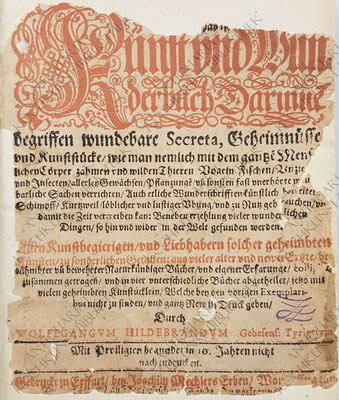 Kunst vnd Wun
derbuch Darinne
begriffen wundebare Secreta, Geheimnüsse
vnd Kunststücke / wie man nemlich mit dem gantzē Men
lichen Cörper zahmen vnd wilden Thieren Vögeln Fischen /
vnd Insecten / allerley Gewächsen /
barlich Sachen verrichten / Auch etliche Wunderschrifften künstlich bereiten
Schimpff / Kurtzweil löblicher vnd lustiger Vbung / vnd zu Nutz gebrauchen /
damit die Zeit vertreiben kan: Benebē erzehlung vieler wunder
Dingen / so hin vnd wider in der Welt gefunden werden.
Allen Kunstbegierigen / vnd Liebhabern solcher geheimbten
Künsten / zu sonderlichen Gefallen: aus vieler alter vnd newer
rühmbter vñ bewehrter Naturkündiger Bücher / vnd eigener Erfahrunge /
zusammen getragen / vnd in vier vnterschiedliche Bücher abgetheilet / jetzo mit
vielen geheimbten Kunstücklin / Welche bey den vorigen Exemplari
bus nicht zu finden / vnd gantz New in Druck geben /
Durch
WOLFFGANGVM HILDEBRANDVM Gebesens. Tyrigetam
Mit Privilegien begnadet in 10. Jahren nicht
nachzudrucken.
Gedruckt zu Erffurt / bey Joachim Mechlers Erben /